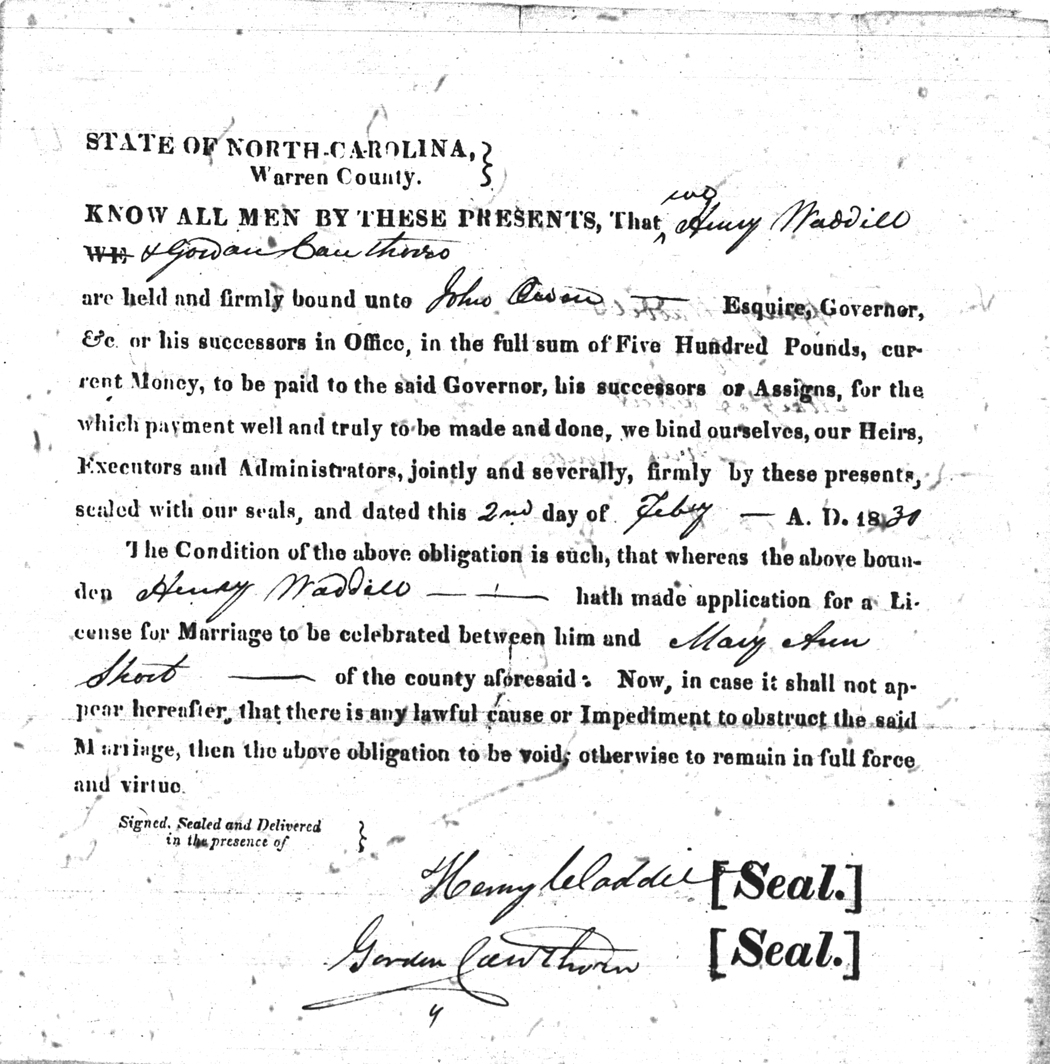 STATE OF NORTH-CAROLINA,
Warren County.
KNOW ALL MEN BY THESE PRESENTS, That we Henry Waddill
WE & Gordan Cawthorn
are held and firmly bound unto John Owen — Esquire, Governor,
&c. or his successors in Office, in the full sum of Five Hundred Pounds, cur-
rent Money, to be paid to the said Governor, his successors or Assigns, for the
which payment well and truly to be made and done, we bind ourselves, our Heirs,
Executors and Administrators, jointly and severally, firmly by these presents,
sealed with our seals, and dated this 2nd day of Feby — A. D. 1830
The Condition of the above obligation is such, that whereas the above boun-
den Henry Waddill — — hath made application for a Li-
cense for Marriage to be celebrated between him and Mary Ann
Short — of the county aforesaid: Now, in case it shall not ap-
pear hereafter, that there is any lawful cause or Impediment to obstruct the said
Marriage, then the above obligation to be void; otherwise to remain in full force
and virtue.
Signed, Sealed and Delivered
in the presence of
Henry Waddill [Seal.]
Gordon Cawthorn [Seal.]